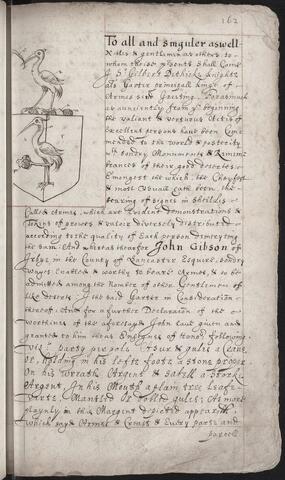 162
To all and singuler aswell
Nobles & gentlemen as others to
whom theise presents shall Come
I Sr Gilbert Dethicke knight
als Garter principall kinge of
Armes send Greeting. Forasmuch
as aunciently from ye beginning
the valiant & vertuous Actes of
excellent persons have been Com
mended to the world & posterity
with sondry Monuments & Remem
brances of their good deserts
Emongest the which, the Chiefest
& most Usuall hath been, the
bearing of signes in Shields
Called Armes, which are Evident demonstrations &
tokens of prowes & valor diversely distributed
according to the quality of Each person demeryting
the same. And whereas therfor John Gibson of
in the County of Lancaster Esquire, sondry
wayes Enabled & worthy to beare Armes, & to be
admitted among the Nomber of other Gentlemen of
like deserts, I the said Garter in Consideration
thereof, And for a further Declaration of the
worthines of the aforesayd John have given and
granted to him these Ensignes of honor following
viz. party per pale Azure & gules a
or, holding in his lefte foote a stone proper
On his wreath Argent & sable a Stork
Argent, In his Mouth a plain tree leafe
verte, Mantled Or dobled gules, As more
playnly in this Margent depicted appeareth,
which sayd Armes & Creast & Every parte and
parcell